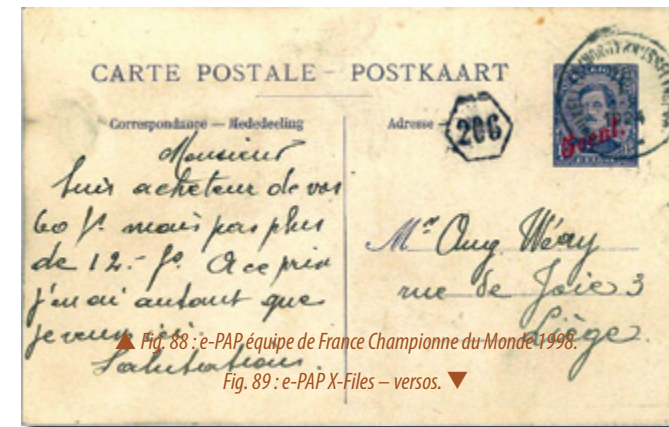 CARTE POSTALE - POSTKAART
Correspondance — Mededeeling
Adresse -
206
5 cent.
Monsieur
Suis acheteur de vos
60 fs. mais pas plus
de 12.- fs. A ce prix
j'en ai autant que
je veux ici.
Salutations.
Mr Aug Wéry
rue de Joie 3
Liège.
▲ Fig. 88 : e-PAP équipe de France Championne du Monde 1998.
Fig. 89 : e-PAP X-Files – versos. ▼